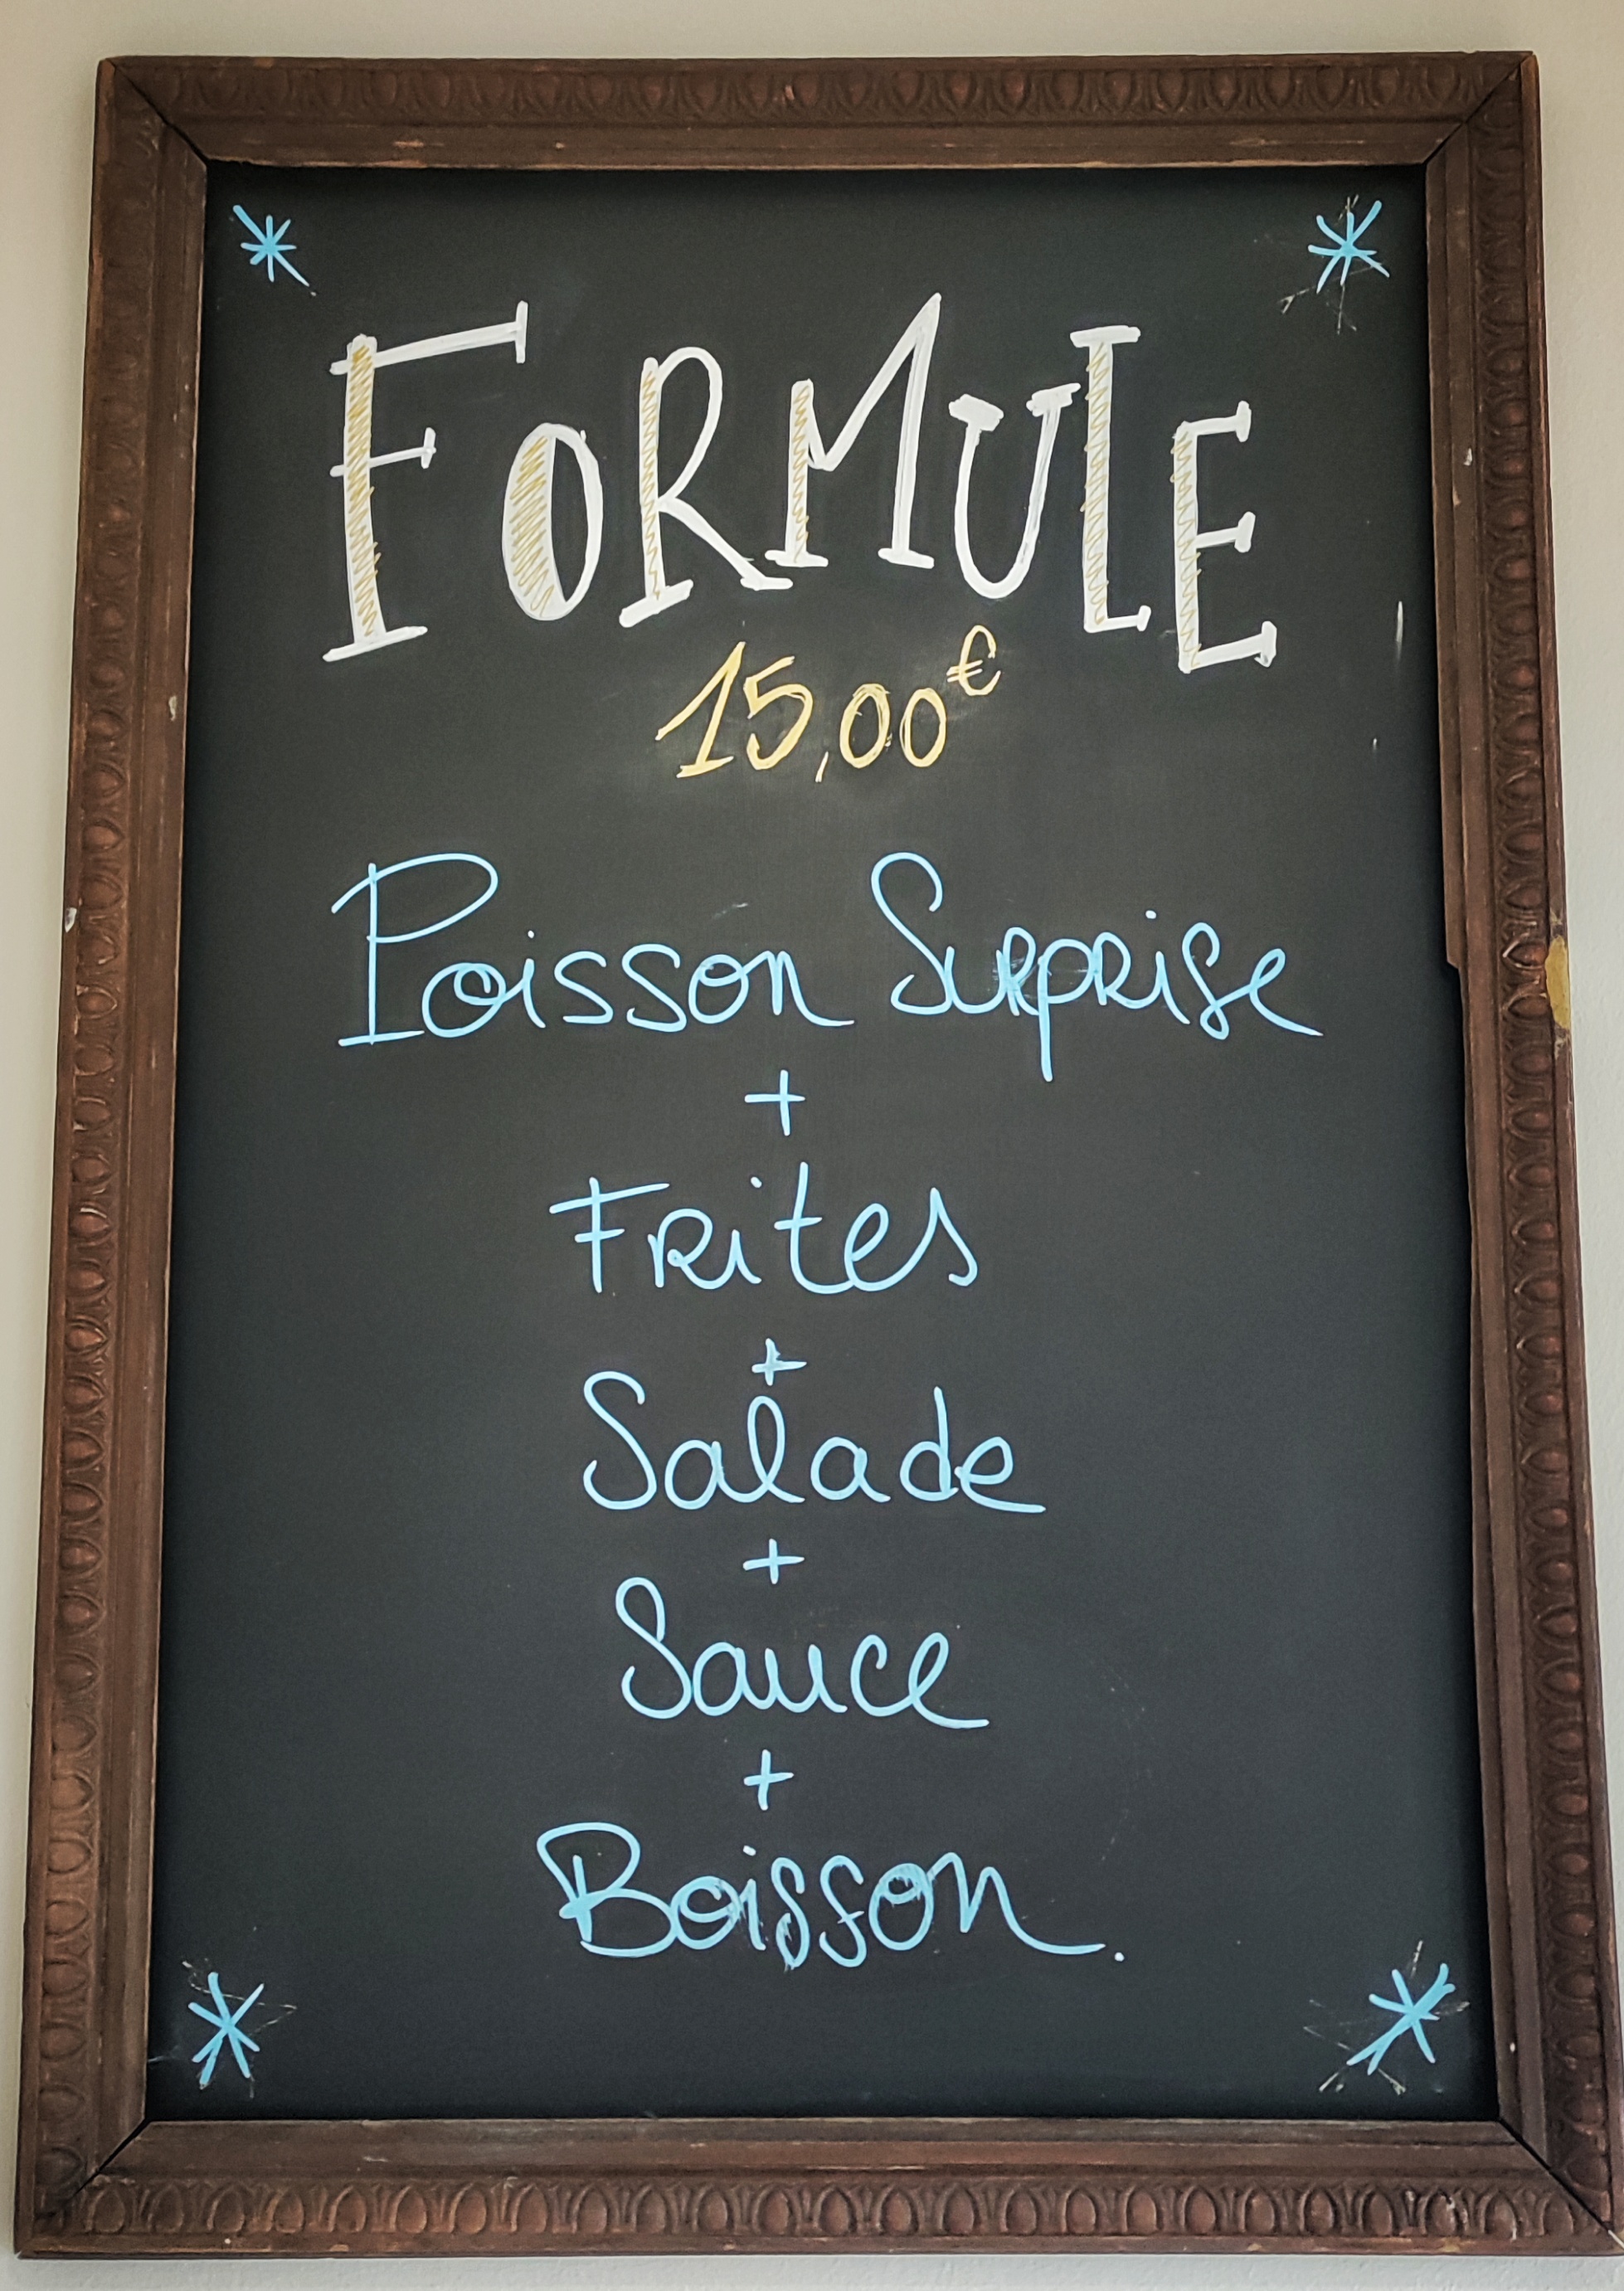 FORMULE
15,00€
Poisson Surprise
+
Frites
+
Salade
+
Sauce
+
Boisson.